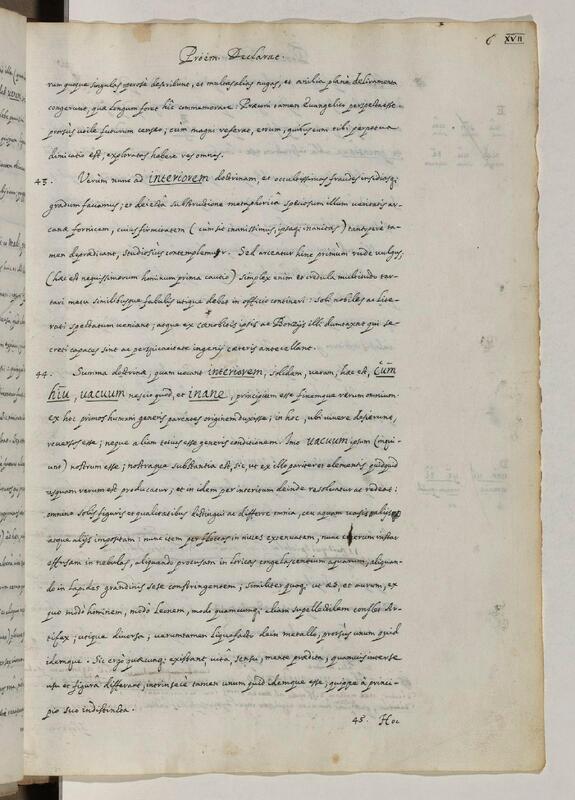 Proëm. Declarat.
6 XVII
rum quisque singulas perosè describunt, et multas alias nugas, et anilia planè deliramenta
congerunt, quæ longum foret hîc commemorare. Præcurri tamen Evangelij
prorsus utile futurum censeo; cum magni referat, eorum, quibuscum tibi perpetua
dimicatio est, exploratas habere vesanias.
43. Verùm nunc ad interiorem doctrinam, et occultissimas fraudes insidiasq;
gradum faciamus; et deiectâ substructione metaphoricâ speciosum illum veritatis ar-
canæ fornicem, cuius firmitatem (cum sit inanissimus, ipsaq; inanitas) tantoperè ta-
men deprædicant, studiosiùs contemplemur. Sed arceatur hinc primùm rude vulgus,
(hæc est nequissimorum hominum prima cautio) simplex enim et credula multitudo tar-
tari metu similibusque fabulis utique debet in officio contineri: soli nobiles ac lite-
rati spectatum veniant; atque ex cœnobitis ipsis ac Bonzijs illi dumtaxat qui se-
creti capaces sint ac perspicacitate ingenij cæteris antecellant.
44. Summa doctrinæ, quam vocant interiorem, solidam, veram; hæc est, Cum̄
hiū, vacuum nescio quid, et inane, principium esse finemque rerum omnium.
ex hoc primos humani generis parentes originem duxisse; in hoc, ubi vivere desierunt,
reversos esse; neque aliam totius esse generis conditionem. Imò vacuum ipsum (inqui-
unt) nostrum esse; nostraque substantia est, sic, ut ex illo pariter et elementis quidquid
usquam rerum est producatur; et in idem per interitum deinde resolvatur ac redeat:
omnia solis figuris et qualitatibus distingui ac differre omnia, ceu aquam vasis alijs
atque alijs impositam: nunc item per floccos in nives extenuatam, nunc iterum
effusam in nebulas, aliquando protusam in loricas congelascentium aquarum, aliquan-
do in lapides grandinis sese constringentem; similiter quoq; ut æs, et aurum, ex
quo modò hominem, modò Leonem, modò quamcunq; aliam supellectilem conflet Ar-
tifex; utique diversa; verumtamen liquefacto dein metallo, prorsùs unum quid
idemque. Sic ergò quæcunq; existunt, vitâ, sensu, mente prædita, quamvis inter se
usu et figurâ differant, intrinsecè tamen unum quid idemque esse; quippe à princi-
pio suo indistincta.
45. Hoc